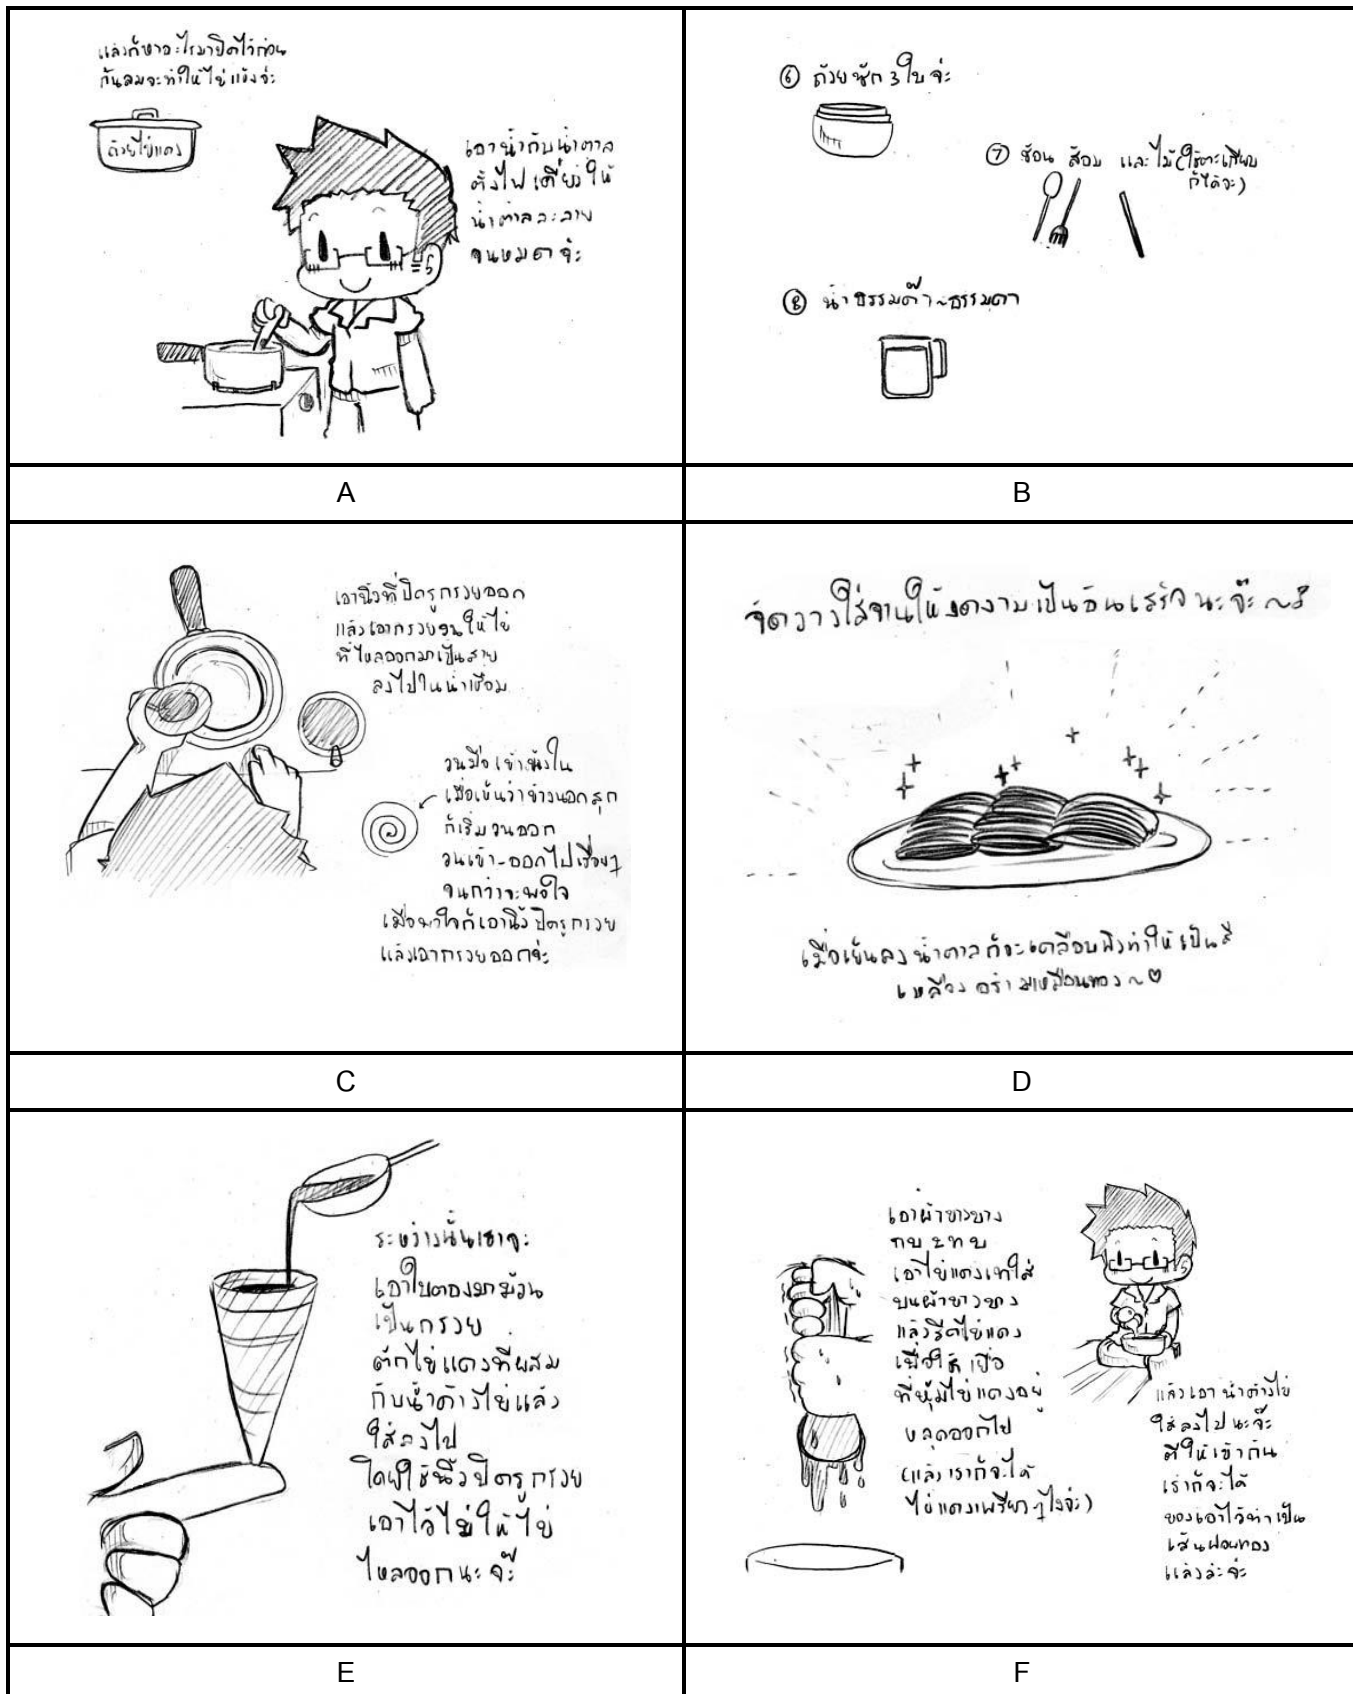 แล้วก็หาอะไรมาปิดไว้ก่อน
กันลมจะทำให้ไข่แข็งจ่ะ
ถ้วยไข่แดง
เอาน้ำกับน้ำตาล
ตั้งไฟ เคี่ยวให้
น้ำตาลละลาย
จนหมดจ้ะ
A
⑥ ถ้วยซัก 3 ใบจ่ะ
⑦ ช้อน ส้อม และไม้ (ใช้ตะเกียบ
ก็ได้จ่ะ)
⑧ น้ำธรรมด๊า~ธรรมดา
B
เอานิ้วที่ปิดรูกรวยออก
แล้วเอากรวยวนให้ไข่
ที่ไหลออกมาเป็นสาย
ลงไปในน้ำเชื่อม
วนมือเข้าข้างใน
เมื่อเห็นว่าข้างนอกสุก
ก็เริ่มวนออก
วนเข้า-ออกไปเรื่อยๆ
จนกว่าจะพอใจ
เมื่อพอใจก็เอานิ้วปิดรูกรวย
แล้วเอากรวยออกจ่ะ
C
จัดวางใส่จานให้งดงามเป็นอันเสร็จนะจ๊ะ~
เมื่อเย็นลงน้ำตาลก็จะเคลือบผิวทำให้เป็นสี
เหลืองอร่ามเหมือนทอง~♡
D
ระหว่างนั้นเราจะ
เอาใบตองมาม้วน
เป็นกรวย
ตักไข่แดงที่ผสม
กับน้ำค้างไข่แล้ว
ใส่ลงไป
โดยใช้นิ้วปิดรูกรวย
เอาไว้ไม่ให้ไข่
ไหลออกนะจ๊ะ
E
เอาผ้าขาวบาง
ทบ 2 ทบ
เอาไข่แดงเทใส่
บนผ้าขาวบาง
แล้วรีดไข่แดง
เพื่อให้เยื่อ
ที่หุ้มไข่แดงอยู่
หลุดออกไป
(แล้วเราก็จะได้
ไข่แดงเพรียวๆไงจ่ะ)
แล้วเอาน้ำค้างไข่
ใส่ลงไปนะจ๊ะ
ตีให้เข้ากัน
เราก็จะได้
ของเอาไว้ทำเป็น
เส้นฝอยทอง
แล้วล่ะจ่ะ
F